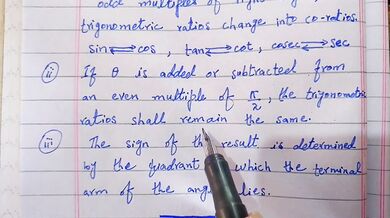 odd multiples of
trigonometric ratios change into co-ratios.
sin⇌cos, tan⇌cot, cosec⇌sec
(ii) If θ is added or subtracted from
an even multiple of π/2, the trigonometric
ratios shall remain the same.
(iii) The sign of the result is determined
by the quadrant which the terminal
arm of the lies.